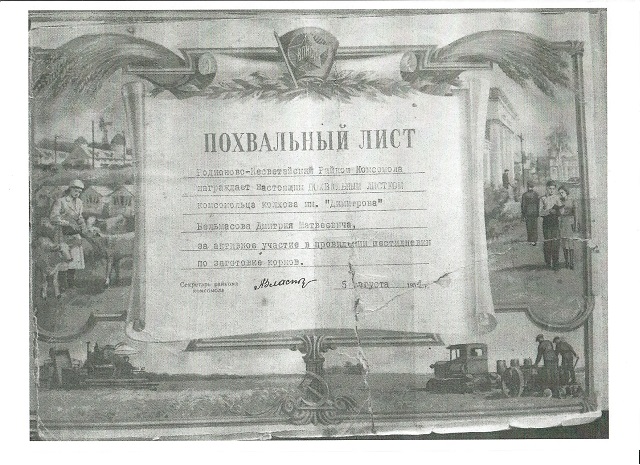 ПОХВАЛЬНЫЙ ЛИСТ
Родионово-Несветайский Райком Комсомола
награждает Настоящим ПОХВАЛЬНЫМ ЛИСТКОМ
комсомольца колхоза им. "Димитрова"
Вельмасова Дмитрия Матвеевича,
за активное участие в
по заготовке кормов.
Секретарь райкома
комсомола
5 августа